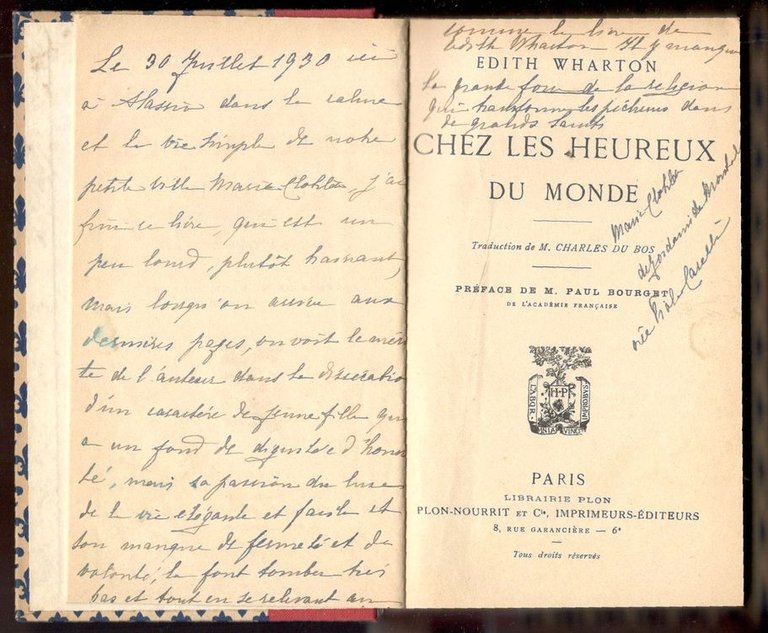 Le 30 Juillet 1930 ici
à Alassio dans le calme
et la vie simple de notre
petite ville Marie Clotilde, j'ai
fini ce livre, qui est un
peu lourd, plutôt
mais lorsqu'on arrive aux
dernières pages, on voit le méri
te de l'auteur dans la
d'un caractère de jeune fille qui
a un fond de d'honne
té, mais sa passion du luxe
de la vie elégante et facile et
son manque de fermeté et de
volonté, la font tomber très
bas et tout en se relevant
comme le livre de
Edith Wharton Il y manque
EDITH WHARTON
la grande force de la religion
qui transforme les pécheurs dans
de grands Saints
CHEZ LES HEUREUX
DU MONDE
Marie Clotilde
Traduction de M. CHARLES DU BOS
PRÉFACE DE M. PAUL BOURGET
DE L'ACADÉMIE FRANÇAISE
née
LABOR
H·P
IMPROBVS
PARIS
LIBRAIRIE PLON
PLON-NOURRIT ET Cie, IMPRIMEURS-ÉDITEURS
8, RUE GARANCIÈRE — 6e
Tous droits réservés